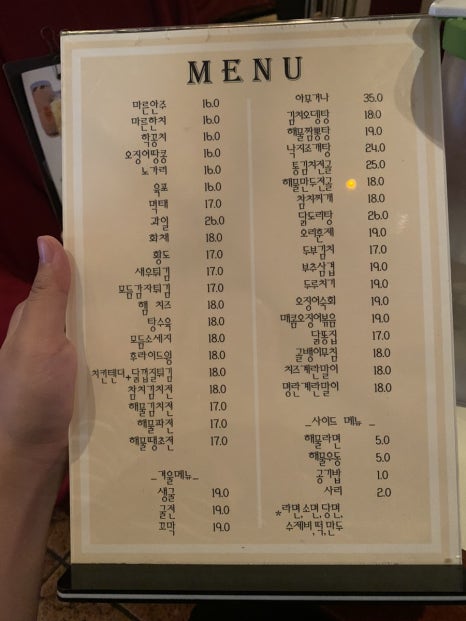 MENU
마른안주 16.0
마른한치 16.0
학꽁치 16.0
오징어땅콩 16.0
노가리 16.0
육포 16.0
먹태 17.0
과일 26.0
화채 18.0
황도 17.0
새우튀김 17.0
모듬감자튀김 17.0
햄 치즈 18.0
탕수육 18.0
모듬소세지 18.0
후라이드윙 18.0
치킨텐더+닭껍질튀김 18.0
참치김치전 18.0
해물김치전 17.0
해물파전 17.0
해물땡초전 17.0
_겨울메뉴_
생굴 19.0
굴전 19.0
꼬막 19.0
아무거나 35.0
김치오뎅탕 18.0
해물짬뽕탕 19.0
낙지조개탕 24.0
통김치전골 25.0
해물만두전골 18.0
참치찌개 18.0
닭도리탕 26.0
오리훈제 19.0
두부김치 17.0
부추삼겹 19.0
두루치기 19.0
오징어숙회 19.0
매콤오징어볶음 19.0
닭똥집 17.0
골뱅이무침 18.0
치즈계란말이 18.0
명란계란말이 18.0
_사이드 메뉴_
해물라면 5.0
해물우동 5.0
공기밥 1.0
사리 2.0
*라면,소면,당면,
수제비,떡,만두